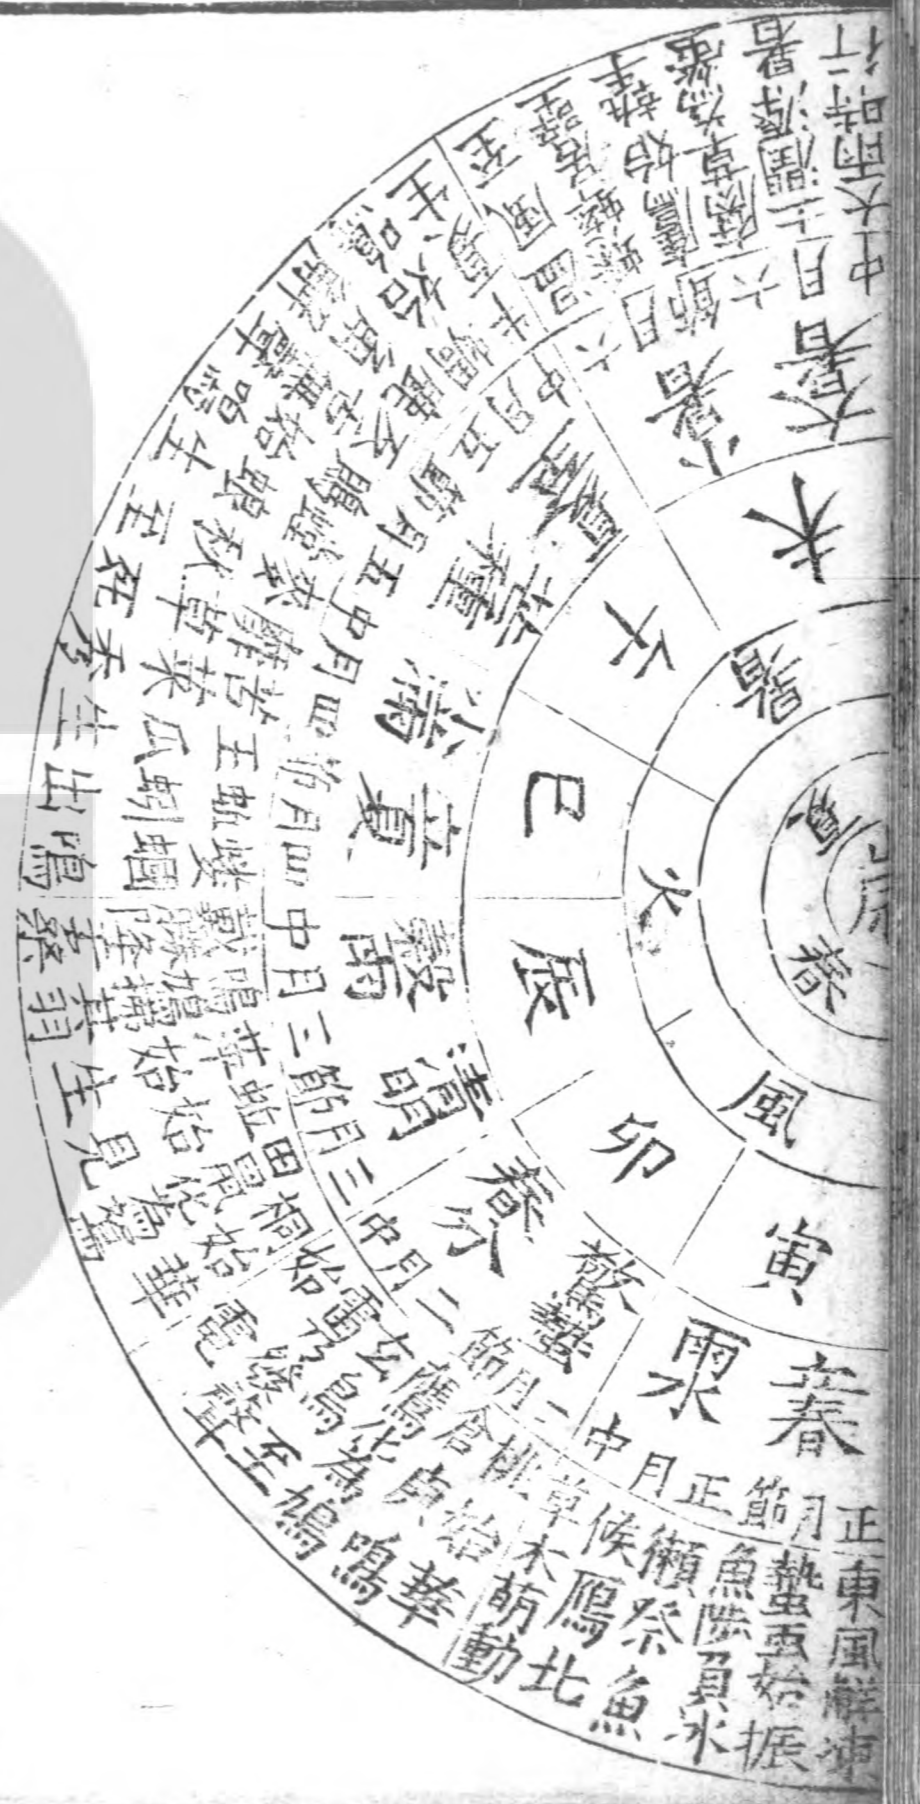 春
夏
風
火
暑
寅
卯
辰
巳
午
未
立春
雨水
驚蟄
春分
清明
穀雨
立夏
小滿
芒種
夏至
小暑
大暑
正月節
正月中
二月節
二月中
三月節
三月中
四月節
四月中
五月節
五月中
六月節
六月中
東風解凍
蟄虫始振
魚陟負冰
獺祭魚
候鴈北
草木萌動
桃始華
倉庚鳴
鷹化為鳩
玄鳥至
雷乃發聲
始電
桐始華
田鼠化為鴽
虹始見
萍始生
鳴鳩拂其羽
戴勝降于桑
螻蟈鳴
蚯蚓出
王瓜生
苦菜秀
靡草死
麥秋至
螳螂生
鵙始鳴
反舌無聲
鹿角解
蜩始鳴
半夏生
溫風至
蟋蟀居壁
鷹始摯
腐草為螢
土潤溽暑
大雨時行